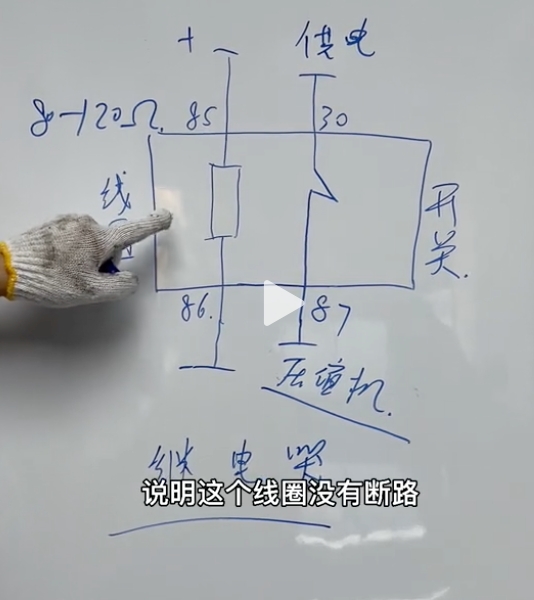 + 供电
80-120Ω 85 30
线
开关
86 87
压缩机
继电器
说明这个线圈没有断路